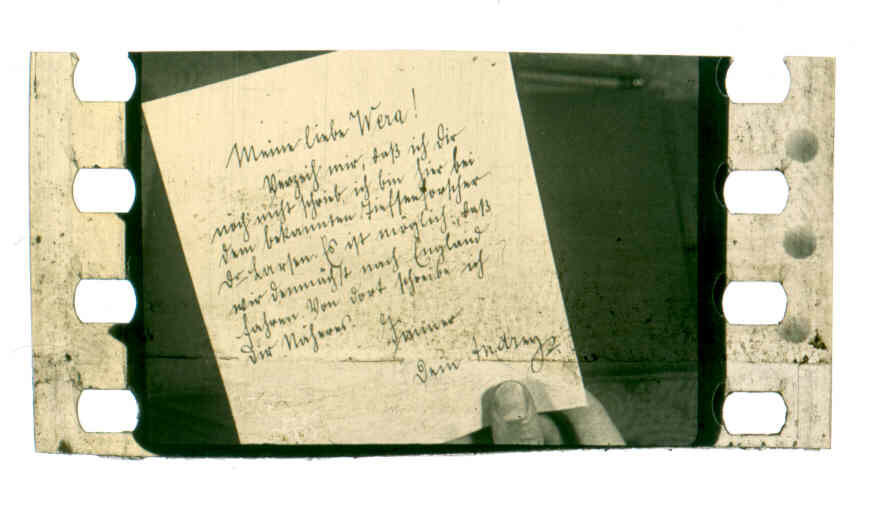 Meine liebe Wera!
Verzeih mir, daß ich Dir
noch nicht schrieb, ich bin hier bei
dem bekannten Tiefseeforscher
Dr. Larsen. Es ist möglich, daß
wir demnächst nach England
fahren. Von dort schreibe ich
Dir Näheres.
Dein Andrey